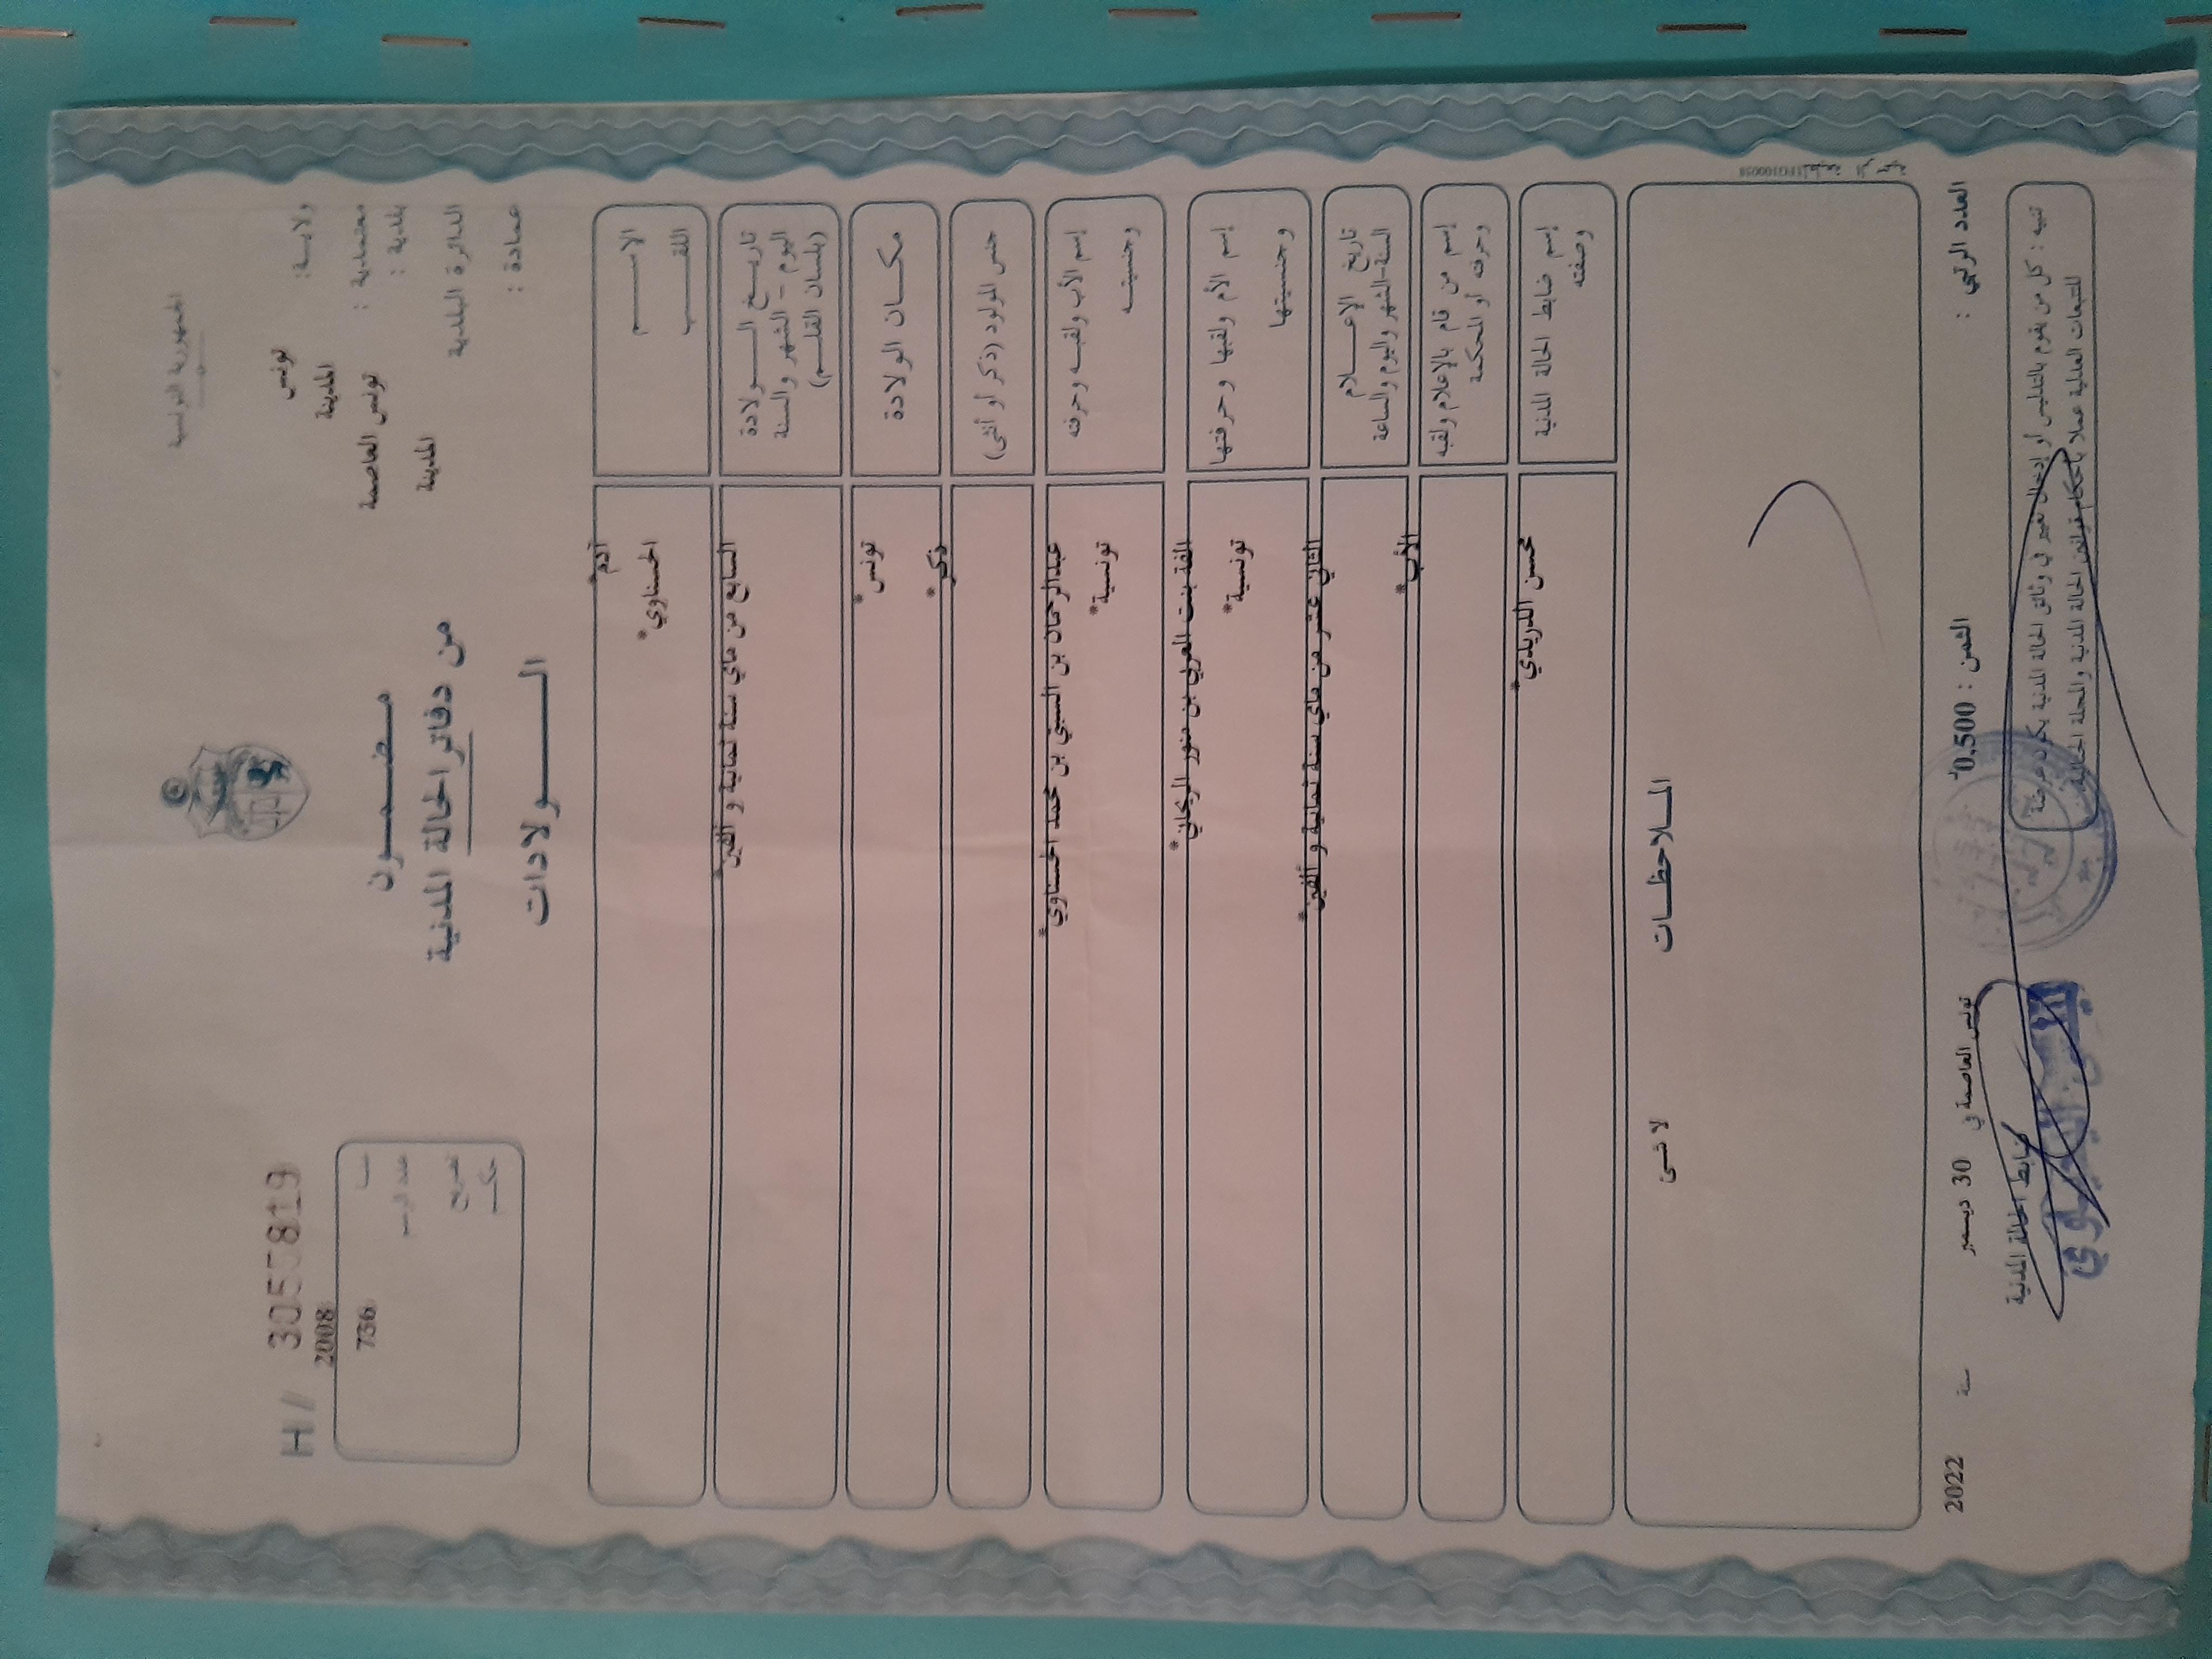 الجمهورية التونسية
ولايـــة: تونس
معتمدية : المدينة
بلدية : تونس العاصمة
الدائرة البلدية المدينة
عمادة :
H/ 305
2008
سنـة
عدد الرسم 736
تصريح
حكـم
مـضـمــون
من دفاتر الحالة المدنية
الــــولادات
الاســــم آدم*
اللقـــب الحسناوي*
تاريــخ الــــولادة
اليوم – الشهر والسنة
(بلسان القلــم)
السابع من ماي سنة ثمانية و ألفين*
مكــان الولادة تونس*
جنس المولود (ذكر أو أنثى) ذكر*
إسم الأب ولقبـه وحرفته عبدالرحمان بن السبتي بن محمد الحسناوي*
وجنسيتـه تونسية*
إسم الأم ولقبها وحرفتها الفة بنت العربي بن منور الريحاني*
وجنسيتها تونسية*
تاريخ الإعـــلام
السنة-الشهر واليوم والساعة
الثاني عشر من ماي سنة ثمانية و ألفين*
إسم من قام بالإعلام ولقبه
وحرفته أو المحكمة
الأب*
إسم ضابط الحالة المدنية
وصفته
محسن الدريدي*
المـلاحظــات
لا شىء
العدد الرتبي :
الثمن : 0,500
تونس العاصمة في 30 ديسمبر سنة 2022
ضابط الحالة المدنية
تنبيه : كل من يقوم بالتدليس أو إدخال تغيير في وثائق الحالة المدنية يكون عرضة
للتتبعات العدلية عملا بأحكام قوانين الحالة المدنية والمجلة الجنائية